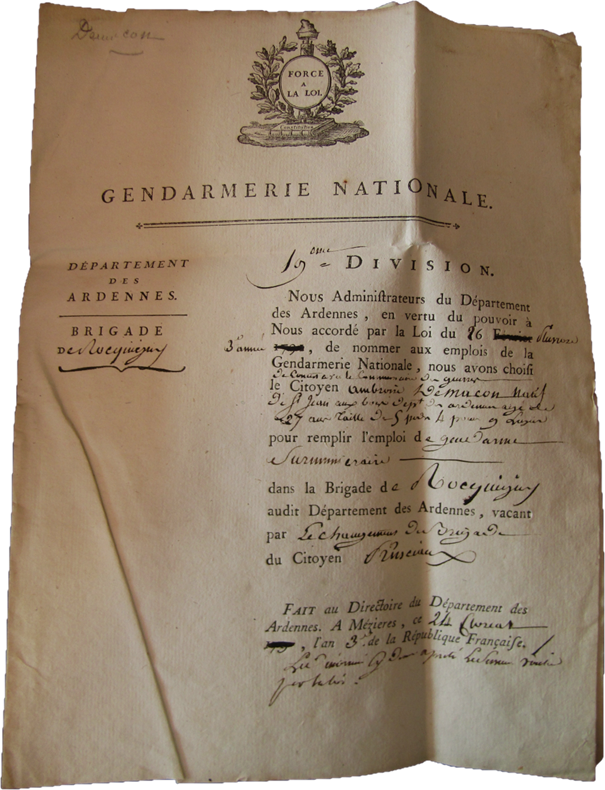 Demacon
FORCE
A
LA LOI.
GENDARMERIE NATIONALE.
DÉPARTEMENT
DES
ARDENNES.
BRIGADE
de Rocquigny
19eme DIVISION.
Nous Adminiſtrateurs du Département
des Ardennes, en vertu du pouvoir à
Nous accordé par la Loi du 26
3e année, de nommer aux emplois de la
Gendarmerie Nationale, nous avons choiſi
le Citoyen ambroise Demacon natif
de St Jean aux bois dept des ardennes agé de
27 ans taille de 5 pieds 4 pouces 9 lignes
pour remplir l'emploi de gendarme
Surnumeraire
dans la Brigade de Rocquigny
audit Département des Ardennes, vacant
par Le changement de Brigade
du Citoyen
FAIT au Directoire du Département des
Ardennes. A Mézieres, ce 24 floreal
, l'an 3e. de la République Française.